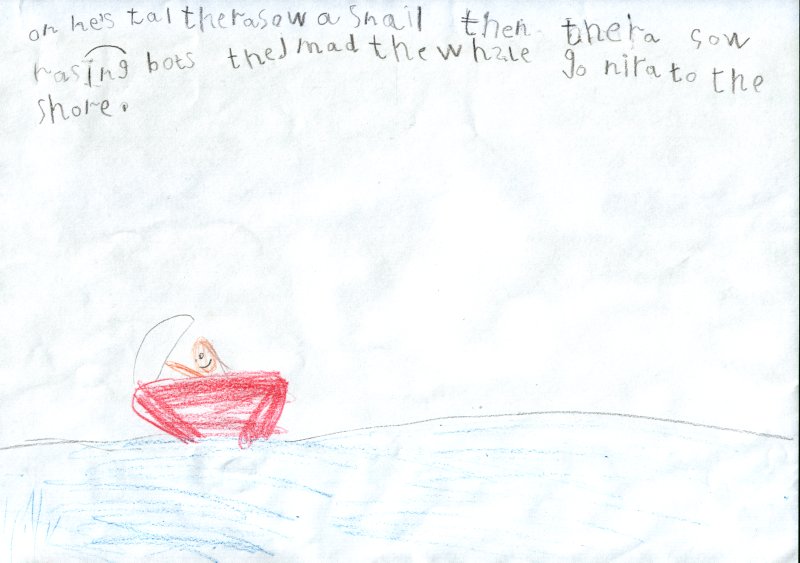 on he's tal therasow a snail then. thera sow
rasing bots they mad the whale go nira to the
shore.